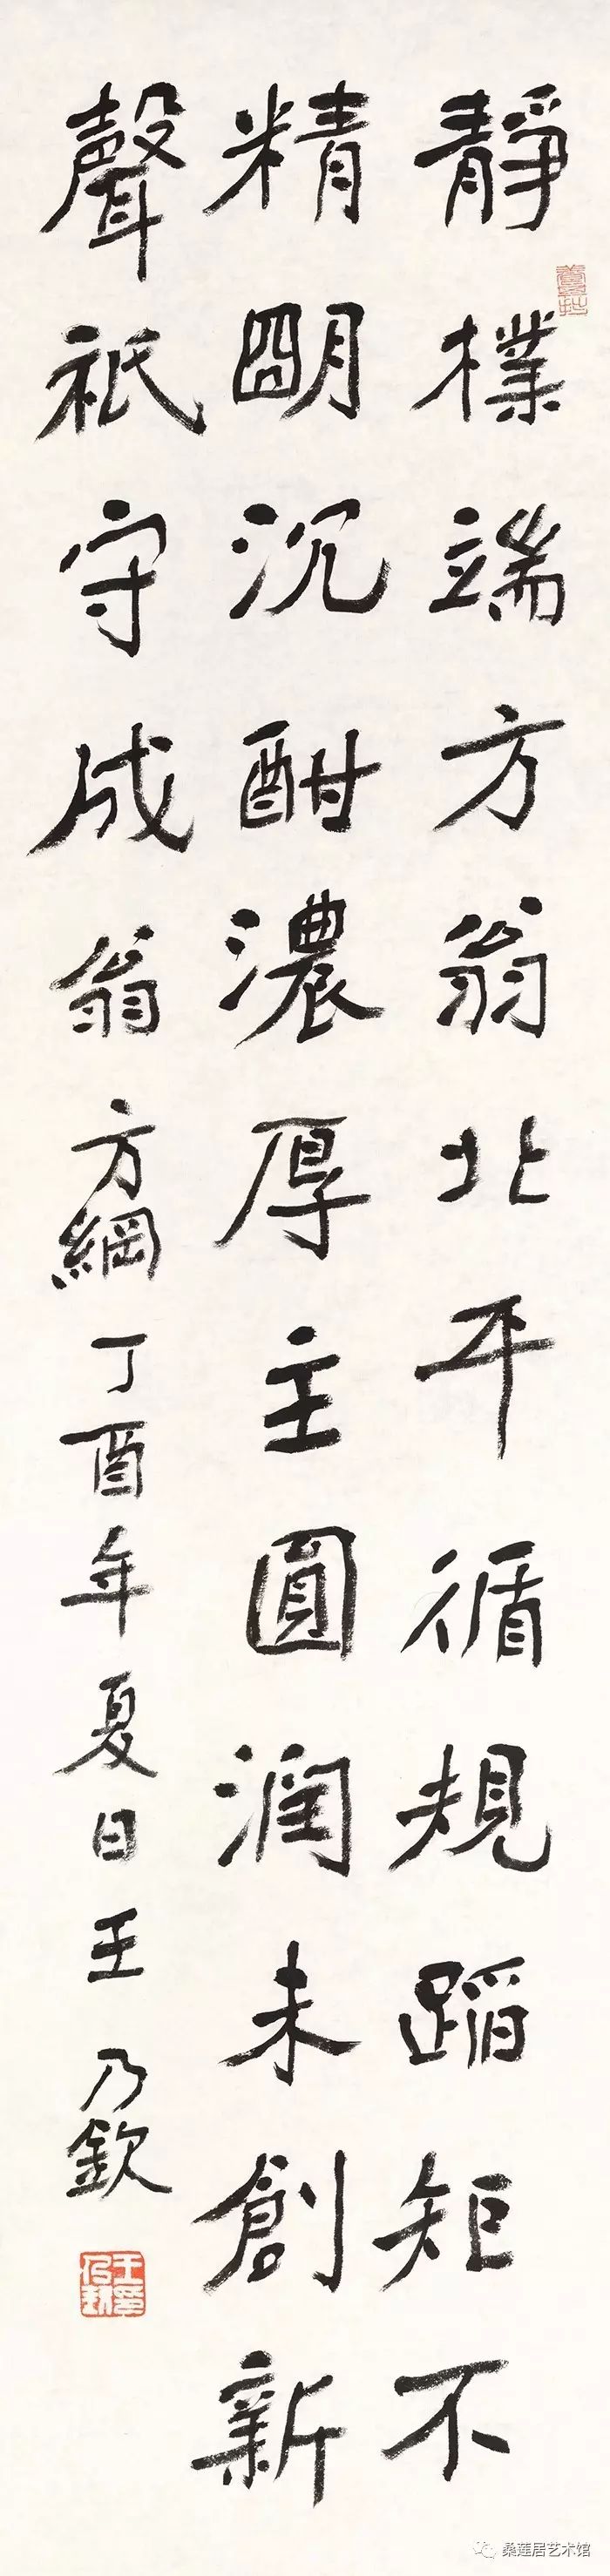 靜樸端方翁北平循規蹈矩不
精明沉酣濃厚主圓潤未創新
聲祇守成翁方綱丁酉年夏日王乃欽
桑莲居艺术馆